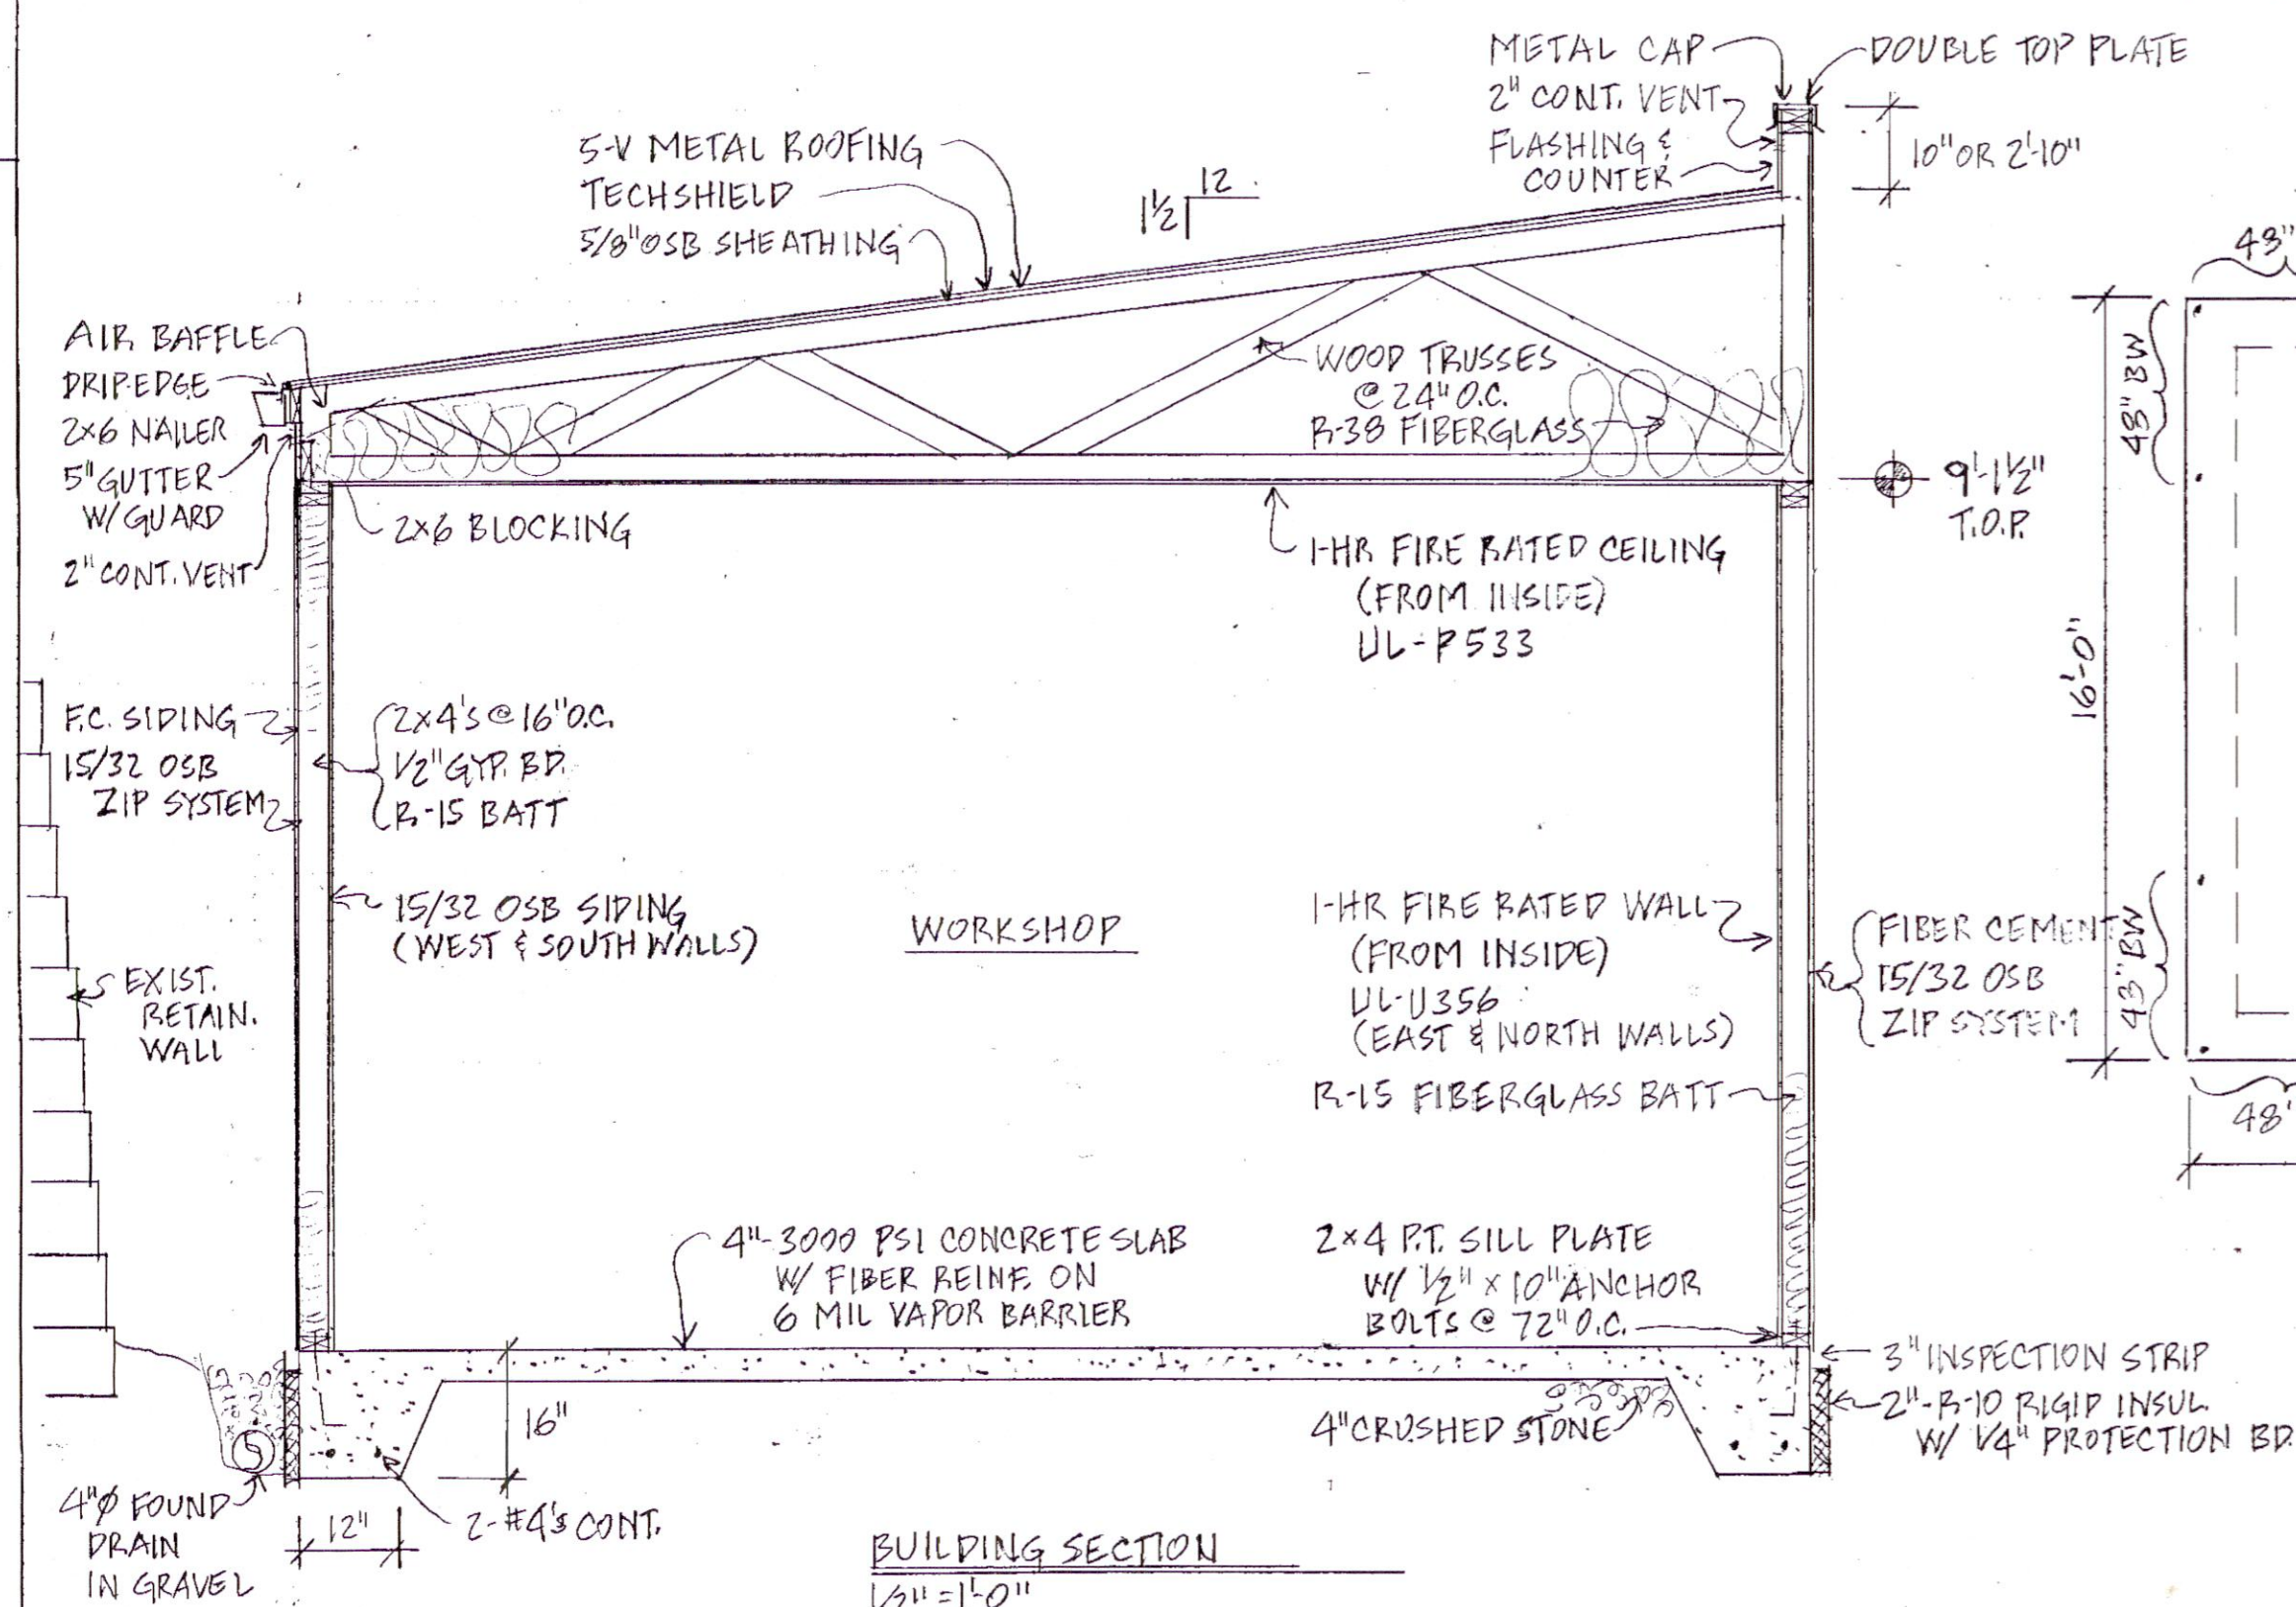 METAL CAP
2" CONT. VENT
FLASHING &
COUNTER
DOUBLE TOP PLATE
10" OR 2'-10"
5-V METAL ROOFING
TECHSHIELD
5/8" OSB SHEATHING
12
1½
AIR BAFFLE
DRIP EDGE
2x6 NAILER
5" GUTTER
W/ GUARD
2" CONT. VENT
2x6 BLOCKING
WOOD TRUSSES
@ 24" O.C.
R-38 FIBERGLASS
9'-1½"
T.O.P.
1-HR FIRE RATED CEILING
(FROM INSIDE)
UL-P533
F.C. SIDING
15/32 OSB
ZIP SYSTEM
2x4's @ 16" O.C.
1/2" GYP. BD.
R-15 BATT
15/32 OSB SIDING
(WEST & SOUTH WALLS)
WORKSHOP
1-HR FIRE RATED WALL
(FROM INSIDE)
UL-U356
(EAST & NORTH WALLS)
R-15 FIBERGLASS BATT
FIBER CEMENT
15/32 OSB
ZIP SYSTEM
EXIST.
RETAIN.
WALL
4"-3000 PSI CONCRETE SLAB
W/ FIBER REINF. ON
6 MIL VAPOR BARRIER
2x4 P.T. SILL PLATE
W/ 1/2" x 10" ANCHOR
BOLTS @ 72" O.C.
3" INSPECTION STRIP
2"-R-10 RIGID INSUL.
W/ 1/4" PROTECTION BD.
4" CRUSHED STONE
16"
12"
2-#4's CONT.
4"Ø FOUND
DRAIN
IN GRAVEL
BUILDING SECTION
=1'-0"
48" BW
16'-0"
BW